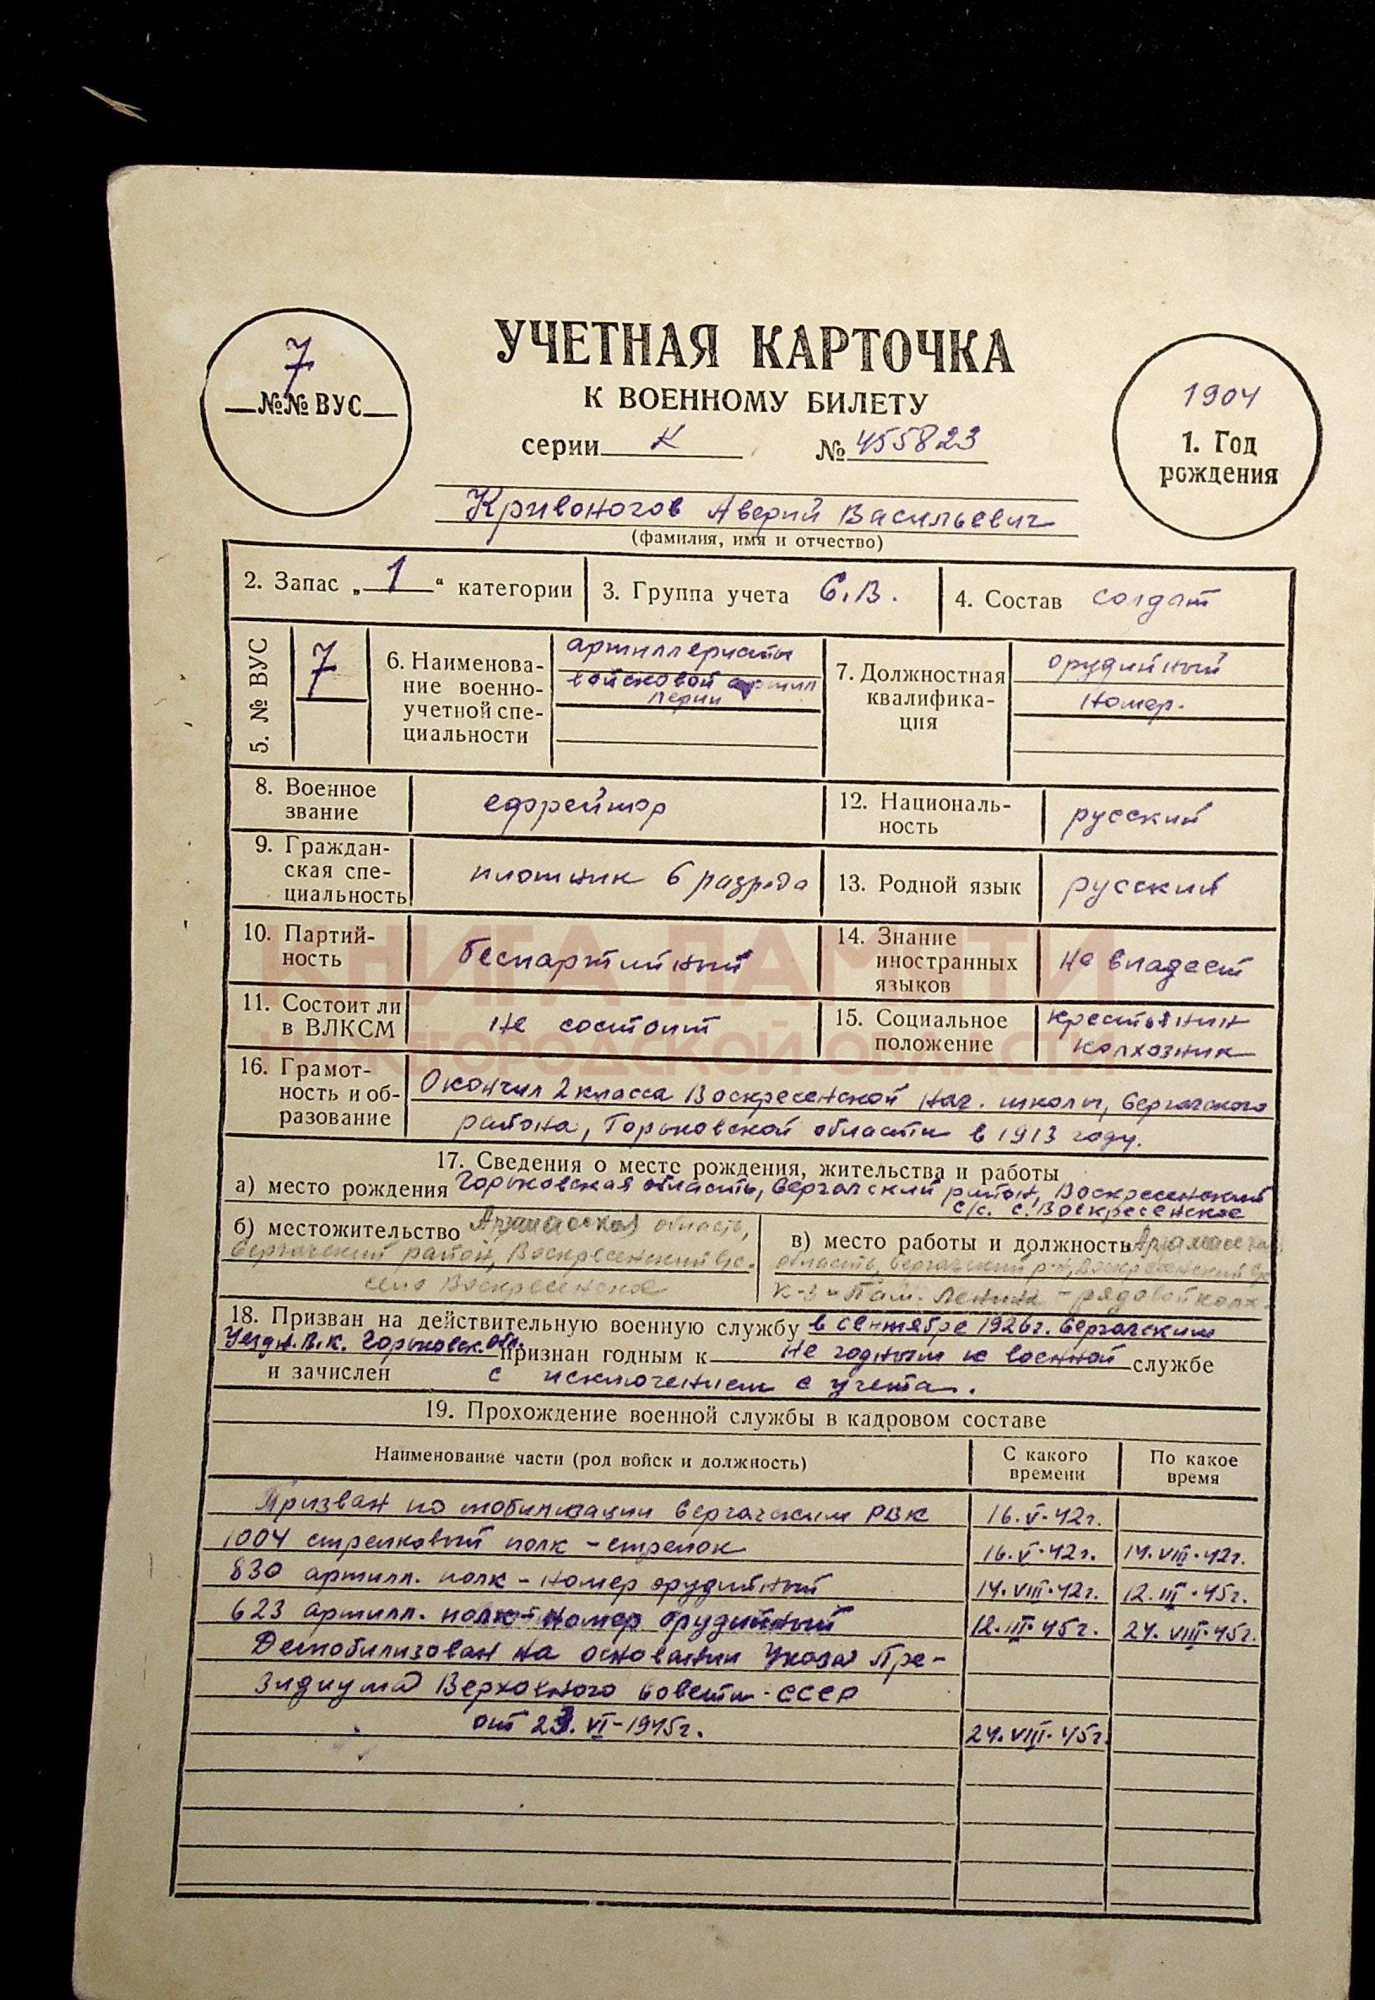 УЧЕТНАЯ КАРТОЧКА
К ВОЕННОМУ БИЛЕТУ
серии К № 455823
7
№№ ВУС
1904
1. Год
рождения
Кривоногов Аверий Васильевич
(фамилия, имя и отчество)
2. Запас „1“ категории
3. Группа учета С.В.
4. Состав солдат
5. № ВУС
7
6. Наименова-
ние военно-
учетной спе-
циальности
артиллеристы
войсковой артил
лерии
7. Должностная
квалифика-
ция
орудийный
номер.
8. Военное
звание
ефрейтор
12. Националь-
ность
русский
9. Граждан-
ская спе-
циальность
плотник 6 разряда
13. Родной язык
русский
10. Партий-
ность
беспартийный
14. Знание
иностранных
языков
не владеет
11. Состоит ли
в ВЛКСМ
не состоит
15. Социальное
положение
крестьянин
колхозник
КНИГА ПАМЯТИ
НИЖЕГОРОДСКОЙ ОБЛАСТИ
16. Грамот-
ность и об-
разование
Окончил 2 класса Воскресенской нач. школы, Сергачского
района, Горьковской области в 1913 году.
17. Сведения о месте рождения, жительства и работы
а) место рождения Горьковская область, Сергачский район, Воскресенский
с/с. с. Воскресенское
б) местожительство Арзамасская область,
Сергачский район, Воскресенский с/с.
село Воскресенское
в) место работы и должность Арзамасская
область, Сергачский р-н, Воскресенский с/с
к-з "Пам. Ленина - рядовой колх.
18. Призван на действительную военную службу в сентябре 1926г. Сергачским
Уездн. В.К. Горьковск. обл. признан годным к не годным к военной службе
и зачислен с исключением с учета.
19. Прохождение военной службы в кадровом составе
Наименование части (род войск и должность)
С какого
времени
По какое
время
Призван по мобилизации Сергачским РВК 16.V.42г.
1004 стрелковый полк - стрелок 16.V.42г. 14.VIII.42г.
830 артилл. полк - номер орудийный 14.VIII.42г. 12.III.45г.
623 артилл. полк - номер орудийный 12.III.45г. 24.VIII.45г.
Демобилизован на основании Указа Пре-
зидиума Верховного Совета СССР
от 23.VI-1945г. 24.VIII.45г.